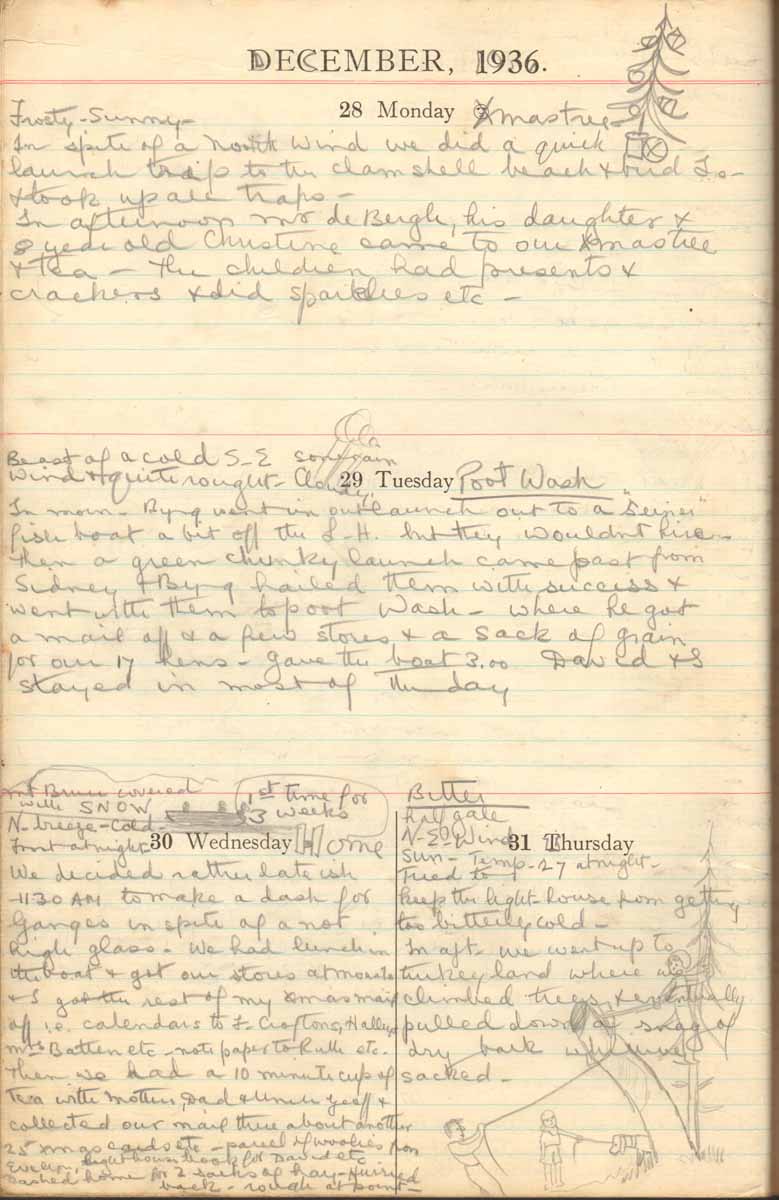 DECEMBER, 1936.
28 Monday Xmastree-
Frosty-Sunny-
In spite of a North Wind we did a quick
launch trip to the clam shell beach & bird Is-
& took up all traps-
In afternoon Mr de Bergh, his daughter &
8 year old Christine came to our Xmastree
& Tea - The children had presents &
crackers & did sparklies etc -
Beast of a cold S-E
wind & quite rough - Cloudy
29 Tuesday Poot Wash
In morn- Byng went in our launch out to a "Seiner"
fish boat a bit off the L-H. but they wouldnt hire-
Then a green chunky launch came past from
Sidney & Byng hailed them with success &
went with them to poot Wash - where he got
a mail off & a few stores & a sack of grain
for our 17 hens - gave the boat 3.00 David & I
stayed in most of the day
Mt Bruce covered
with SNOW
N-breeze-Cold-
Frost at night
1st time for
3 weeks
30 Wednesday Home
We decided rather late ish
-11 30 AM to make a dash for
Ganges in spite of a not
high glass - We had lunch in
the boat & got our stores at
& I got the rest of my Xmas mail
off i.e. calendars to F- Croftons,
Mrs Batten etc - note paper to Ruth etc.
Then we had a 10 minute cup of
Tea with Mother, Dad & Uncle Geoff &
collected our mail there about another
25 Xmas cards etc - parcel of woolies from
Evelyn, lighthouse book for David etc
Dashed home for 2 sacks of hay - Hurried
back - rough at point-
31 Thursday
Bitter
half gale
N-E-Wind
Sun - Temp-27 at night-
Tried to
keep the light-house from getting
too bitterly cold-
In aft- we went up to
turkey land where we
climbed trees, & eventually
pulled down a snag of
dry bark which we
sacked-